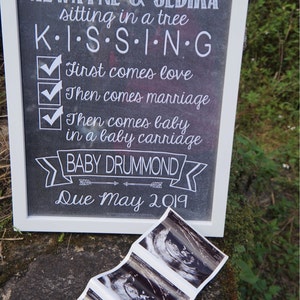 & 
sitting in a tree
K•I•S•S•I•N•G
First comes love
Then comes marriage
Then comes baby
in a baby carriage
BABY DRUMMOND
Due May 2019